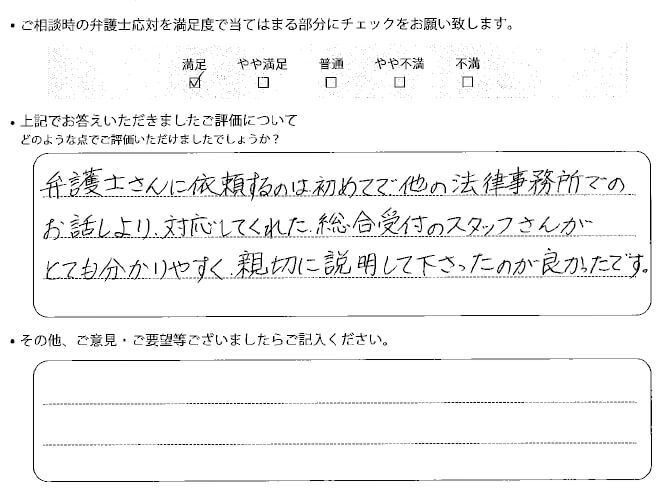 ・ご相談時の弁護士応対を満足度で当てはまる部分にチェックをお願い致します。
満足 やや満足 普通 やや不満 不満
☑ ☐ ☐ ☐ ☐
・上記でお答えいただきましたご評価について
どのような点でご評価いただけましたでしょうか？
弁護士さんに依頼するのは初めてで他の法律事務所での
お話しより、対応してくれた総合受付のスタッフさんが
とても分かりやすく、親切に説明して下さったのが良かったです。
・その他、ご意見・ご要望等ございましたらご記入ください。